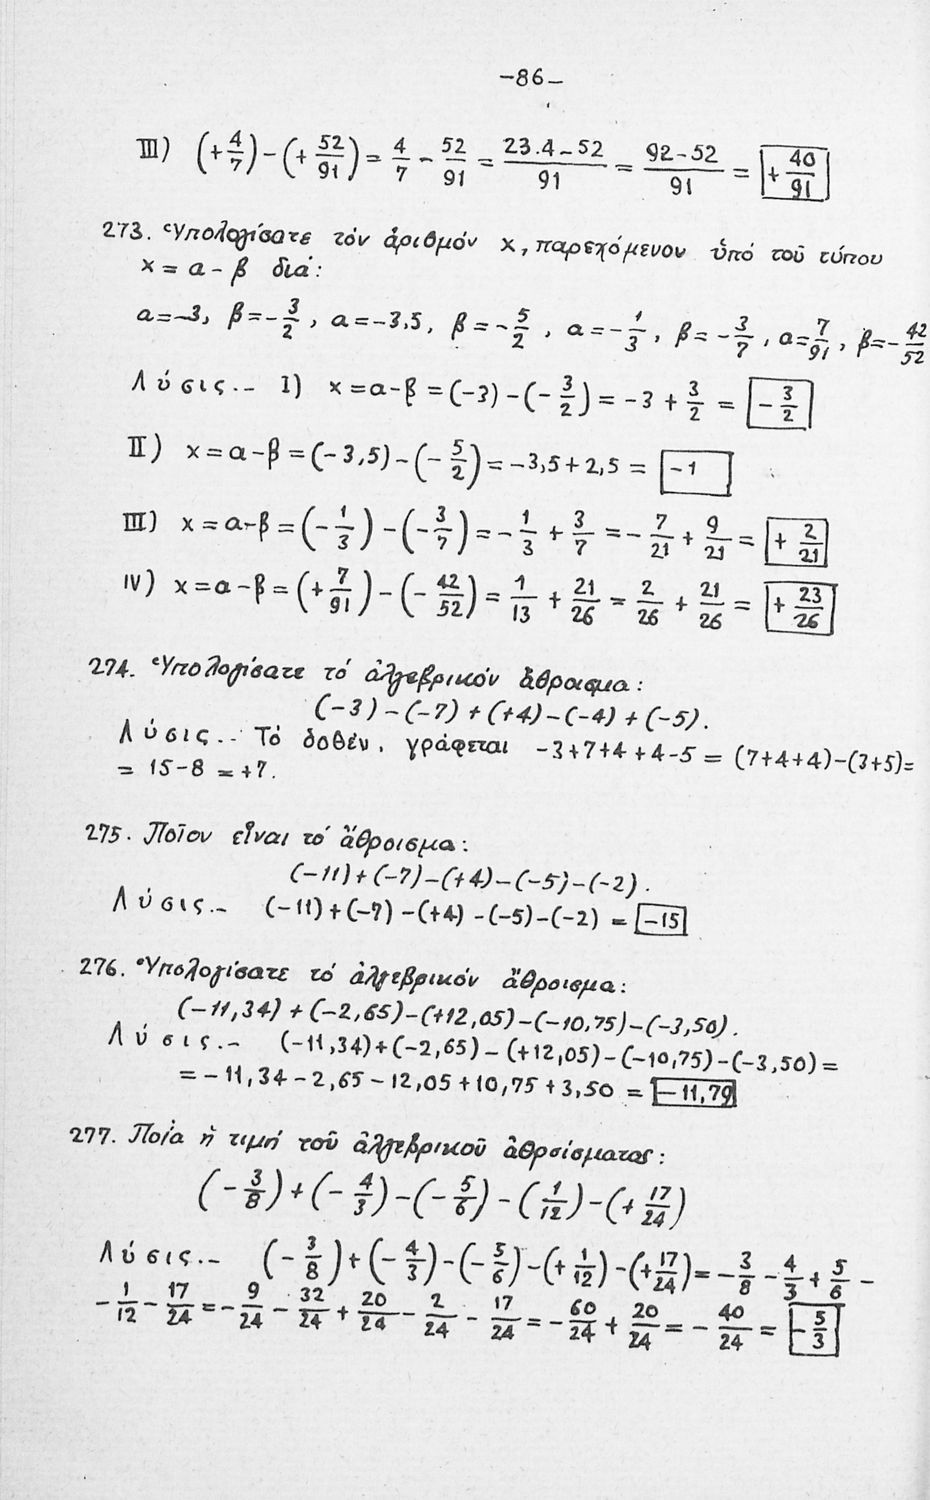 -86-
III) (+4/7)-(+52/91)=4/7-52/91=(23.4-52)/91=(92-52)/91=+40/91
273. Ὑπολογίσατε τόν ἀριθμόν x, παρεχόμενον ὑπό τοῦ τύπου
x=α-β διά:
α=-3, β=-3/2, α=-3,5, β=-5/2, α=-1/3, β=-3/7, α=7/91, β=-42/52
Λύσις.- I) x=α-β=(-3)-(-3/2)=-3+3/2=-3/2
II) x=α-β=(-3,5)-(-5/2)=-3,5+2,5=-1
III) x=α-β=(-1/3)-(-3/7)=-1/3+3/7=-7/21+9/21=+2/21
IV) x=α-β=(+7/91)-(-42/52)=1/13+21/26=2/26+21/26=+23/26
274. Ὑπολογίσατε τό ἀλγεβρικόν ἄθροισμα:
(-3)-(-7)+(+4)-(-4)+(-5).
Λύσις.- Τό δοθέν, γράφεται -3+7+4+4-5=(7+4+4)-(3+5)=
=15-8=+7.
275. Ποῖον εἶναι τό ἄθροισμα:
(-11)+(-7)-(+4)-(-5)-(-2).
Λύσις.- (-11)+(-7)-(+4)-(-5)-(-2)=-15
276. Ὑπολογίσατε τό ἀλγεβρικόν ἄθροισμα:
(-11,34)+(-2,65)-(+12,05)-(-10,75)-(-3,50).
Λύσις.- (-11,34)+(-2,65)-(+12,05)-(-10,75)-(-3,50)=
=-11,34-2,65-12,05+10,75+3,50=-11,79
277. Ποία ἡ τιμή τοῦ ἀλγεβρικοῦ ἀθροίσματος:
(-3/8)+(-4/3)-(-5/6)-(1/12)-(+17/24)
Λύσις.- (-3/8)+(-4/3)-(-5/6)-(+1/12)-(+17/24)=-3/8-4/3+5/6-
-1/12-17/24=-9/24-32/24+20/24-2/24-17/24=-60/24+20/24=-40/24=-5/3